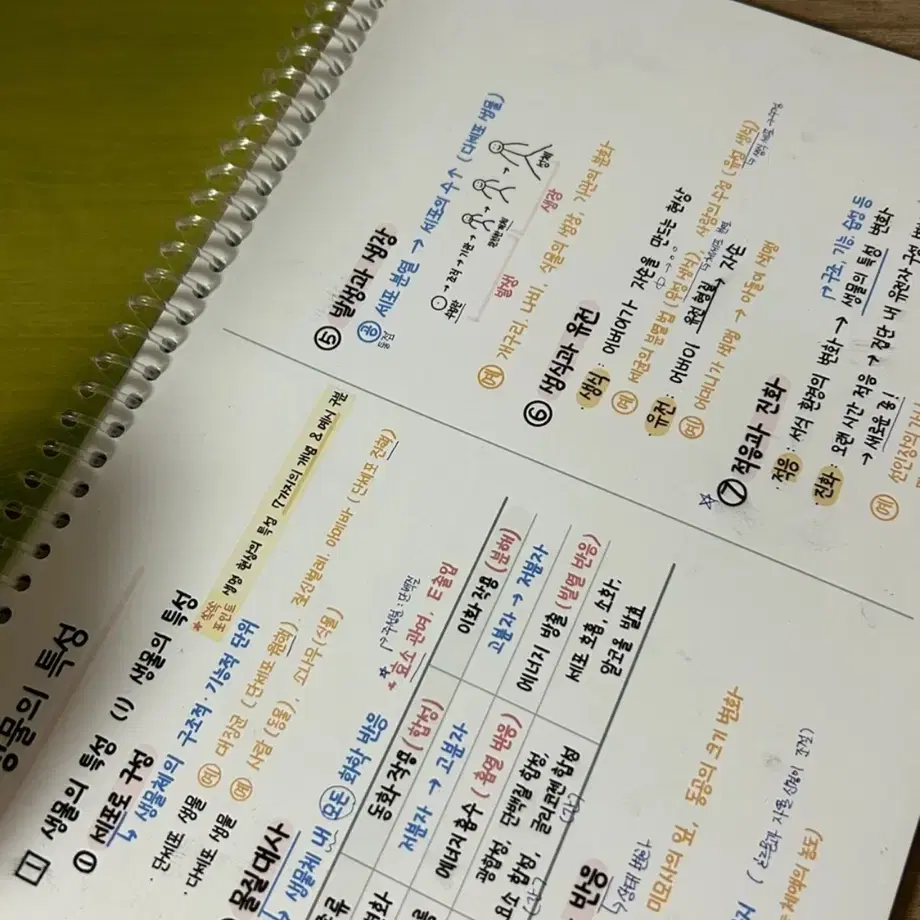 생물의 특성
1 생물의 특성 (1) 생물의 특성
① 세포로 구성
↳ 생물체의 구조적·기능적 단위
★ 쏙쏙 포인트 생명 현상의 특성 7가지의 개념 & 예시 구분
· 단세포 생물 예 대장균 (단세포 원핵), 짚신벌레, 아메바 (단세포 진핵)
· 다세포 생물 예 사람 (동물), 소나무 (식물)
물질대사
↳ 생물체 내 모든 화학 반응
↱ 주성분: 단백질
★ 효소 관여, E출입
동화 작용 (합성)
이화 작용 (분해)
저분자 → 고분자
고분자 → 저분자
에너지 흡수 (흡열 반응)
에너지 방출 (발열 반응)
광합성, 단백질 합성,
요소 합성, 글리코젠 합성
(간) (간)
세포 호흡, 소화,
알코올 발효
반응
미모사의 잎, 동공의 크기 변화
체액의 농도
⑤ 발생과 생장
공통점 세포 분열 → 세포의 수 ↑ (다세포 생물)
→ 조직 → 기관 →
수정란
발생
생장
예 개구리, 나비, 식물의 생장, 기관의 분화
⑥ 생식과 유전
· 생식: 어버이가 자손을 만드는 현상
예 세균의 분열법 (무성 생식), 사람의 수정 (유성 생식)
· 유전: 어버이 유전 형질 → 자손
예 어머니가 색맹 → 아들이 색맹
☆ ⑦ 적응과 진화
↱ 구조, 기능, 습성 등
· 적응: 서식 환경의 변화 → 생물의 특성 변화
· 진화: 오랜 시간 적응 → 집단 내 유전자 구성
→ 새로운 종!
예 선인장의 가시